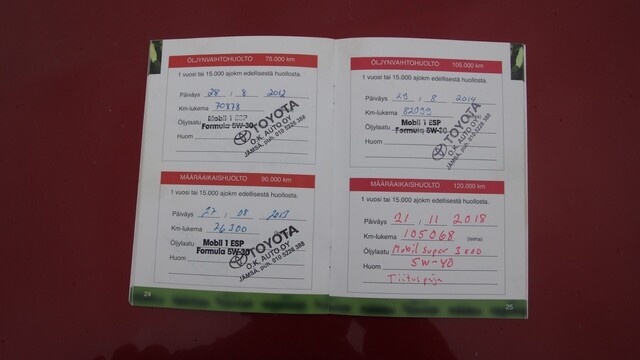 ÖLJYNVAIHTOHUOLTO 75.000 km
1 vuosi tai 15.000 ajokm edellisestä huollosta.
Päiväys 28 . 8 2012
Km-lukema 70878
Öljylaatu Mobil 1 ESP
Formula 5W-30
Huom
TOYOTA
O.K. AUTO OY
JÄMSÄ, puh. 010 5228 388
MÄÄRÄAIKAISHUOLTO 90.000 km
1 vuosi tai 15.000 ajokm edellisestä huollosta.
Päiväys 27 . 08 2013
Km-lukema 26300
Öljylaatu Mobil 1 ESP
Formula 5W-30
Huom
TOYOTA
O.K. AUTO OY
JÄMSÄ, puh. 010 5228 388
24
ÖLJYNVAIHTOHUOLTO 105.000 km
1 vuosi tai 15.000 ajokm edellisestä huollosta.
Päiväys 29 . 8 2014
Km-lukema 82099
Öljylaatu Mobil 1 ESP
Formula 5W-30
Huom
TOYOTA
O.K. AUTO OY
JÄMSÄ, puh. 010 5228 388
MÄÄRÄAIKAISHUOLTO 120.000 km
1 vuosi tai 15.000 ajokm edellisestä huollosta.
Päiväys 21 . 11 2018
Km-lukema 105068
Öljylaatu Mobil Super 3000
Huom 5W-40
25